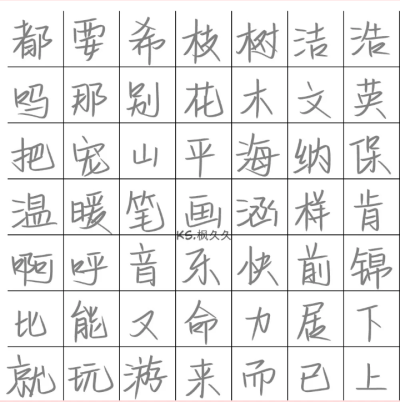 都要希枝树洁浩
吗那别花木文英
把宠山平海纳保
温暖笔画涵样肯
KS.枫久久
啊呼音乐快前锦
比能又命力居下
就玩游来而已上